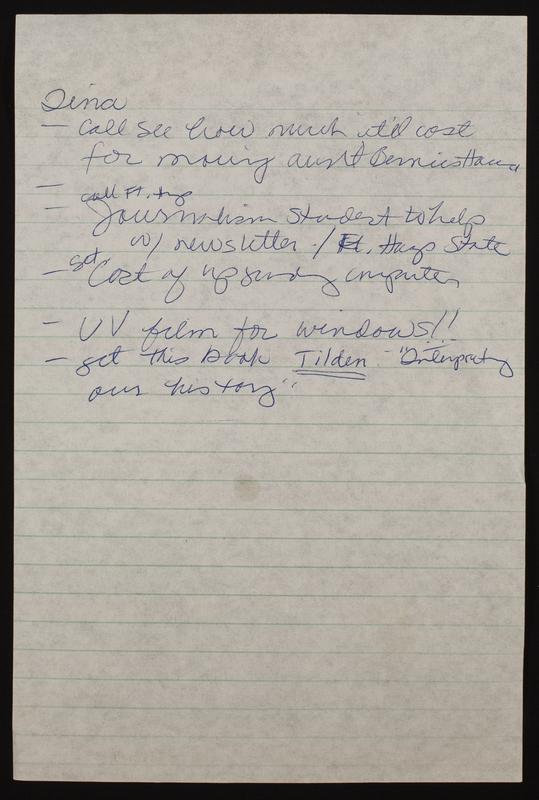 Dina
- Call see how much it'd cost
for moving aunt Bernices House
-
call Ft. Hays
- Journalism Student to help
w/ newsletter / Ft. Hays State
- get Cost of upgrading computer
- UV film for windows!!
- get this book Tilden - "Interpreting
our history"